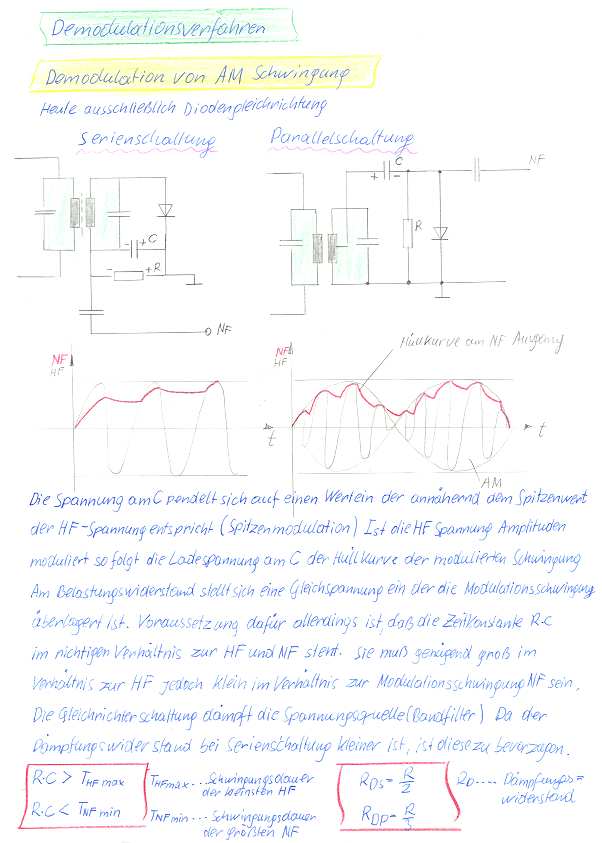 Demodulationsverfahren
Demodulation von AM Schwingung
Heute ausschließlich Diodengleichrichtung
Serienschaltung
Parallelschaltung
- + C
- + R
NF
C
+ -
R
NF
NF
HF
t
NF
HF
Hüllkurve am NF Ausgang
t
AM
Die Spannung am C pendelt sich auf einen Wert ein der annähernd dem Spitzenwert
der HF-Spannung entspricht (Spitzenmodulation) Ist die HF Spannung Amplituden
moduliert so folgt die Ladespannung am C der Hüllkurve der modulierten Schwingung
Am Belastungswiderstand stellt sich eine Gleichspannung ein der die Modulationsschwingung
überlagert ist. Voraussetzung dafür allerdings ist, daß die Zeitkonstante R·C
im richtigen Verhältnis zur HF und NF steht. Sie muß genügend groß im
Verhältnis zur HF jedoch klein im Verhältnis zur Modulationsschwingung NF sein.
Die Gleichrichterschaltung dämpft die Spannungsquelle (Bandfilter) Da der
Dämpfungswiderstand bei Serienschaltung kleiner ist, ist diese zu bevorzugen.
R·C > THFmax
R·C < TNFmin
THFmax... Schwingungsdauer
der kleinsten HF
TNFmin... Schwingungsdauer
der größten NF
RDS = R/2
RDP = R/3
RD.... Dämpfungs=
widerstand